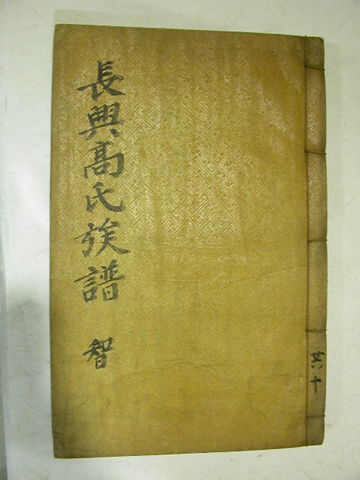 長興高氏族譜 智
共十